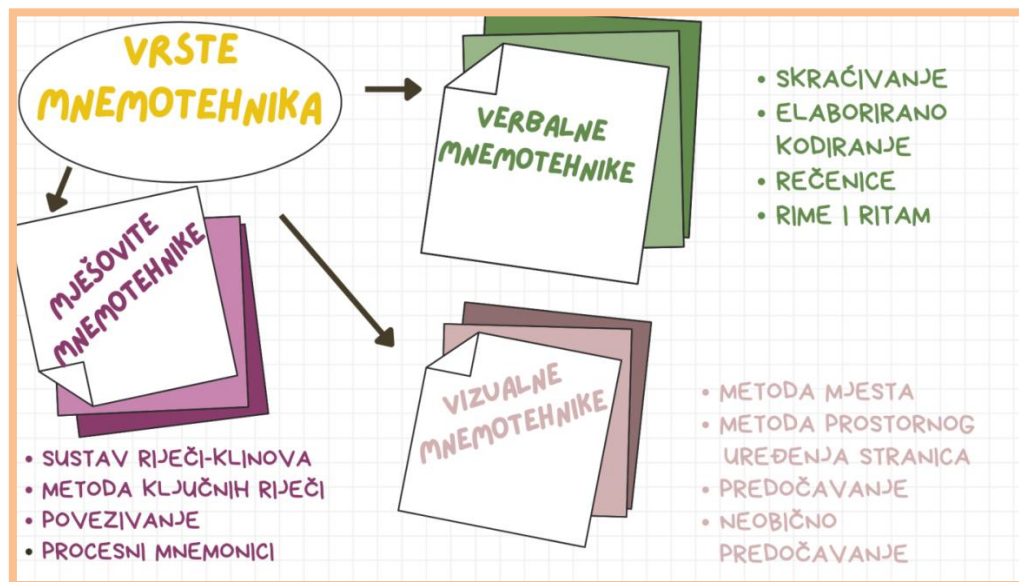 VRSTE
MNEMOTEHNIKA
VERBALNE
MNEMOTEHNIKE
• SKRAĆIVANJE
• ELABORIRANO
KODIRANJE
• REČENICE
• RIME I RITAM
MJEŠOVITE
MNEMOTEHNIKE
• SUSTAV RIJEČI-KLINOVA
• METODA KLJUČNIH RIJEČI
• POVEZIVANJE
• PROCESNI MNEMONICI
VIZUALNE
MNEMOTEHNIKE
• METODA MJESTA
• METODA PROSTORNOG
UREĐENJA STRANICA
• PREDOČAVANJE
• NEOBIČNO
PREDOČAVANJE